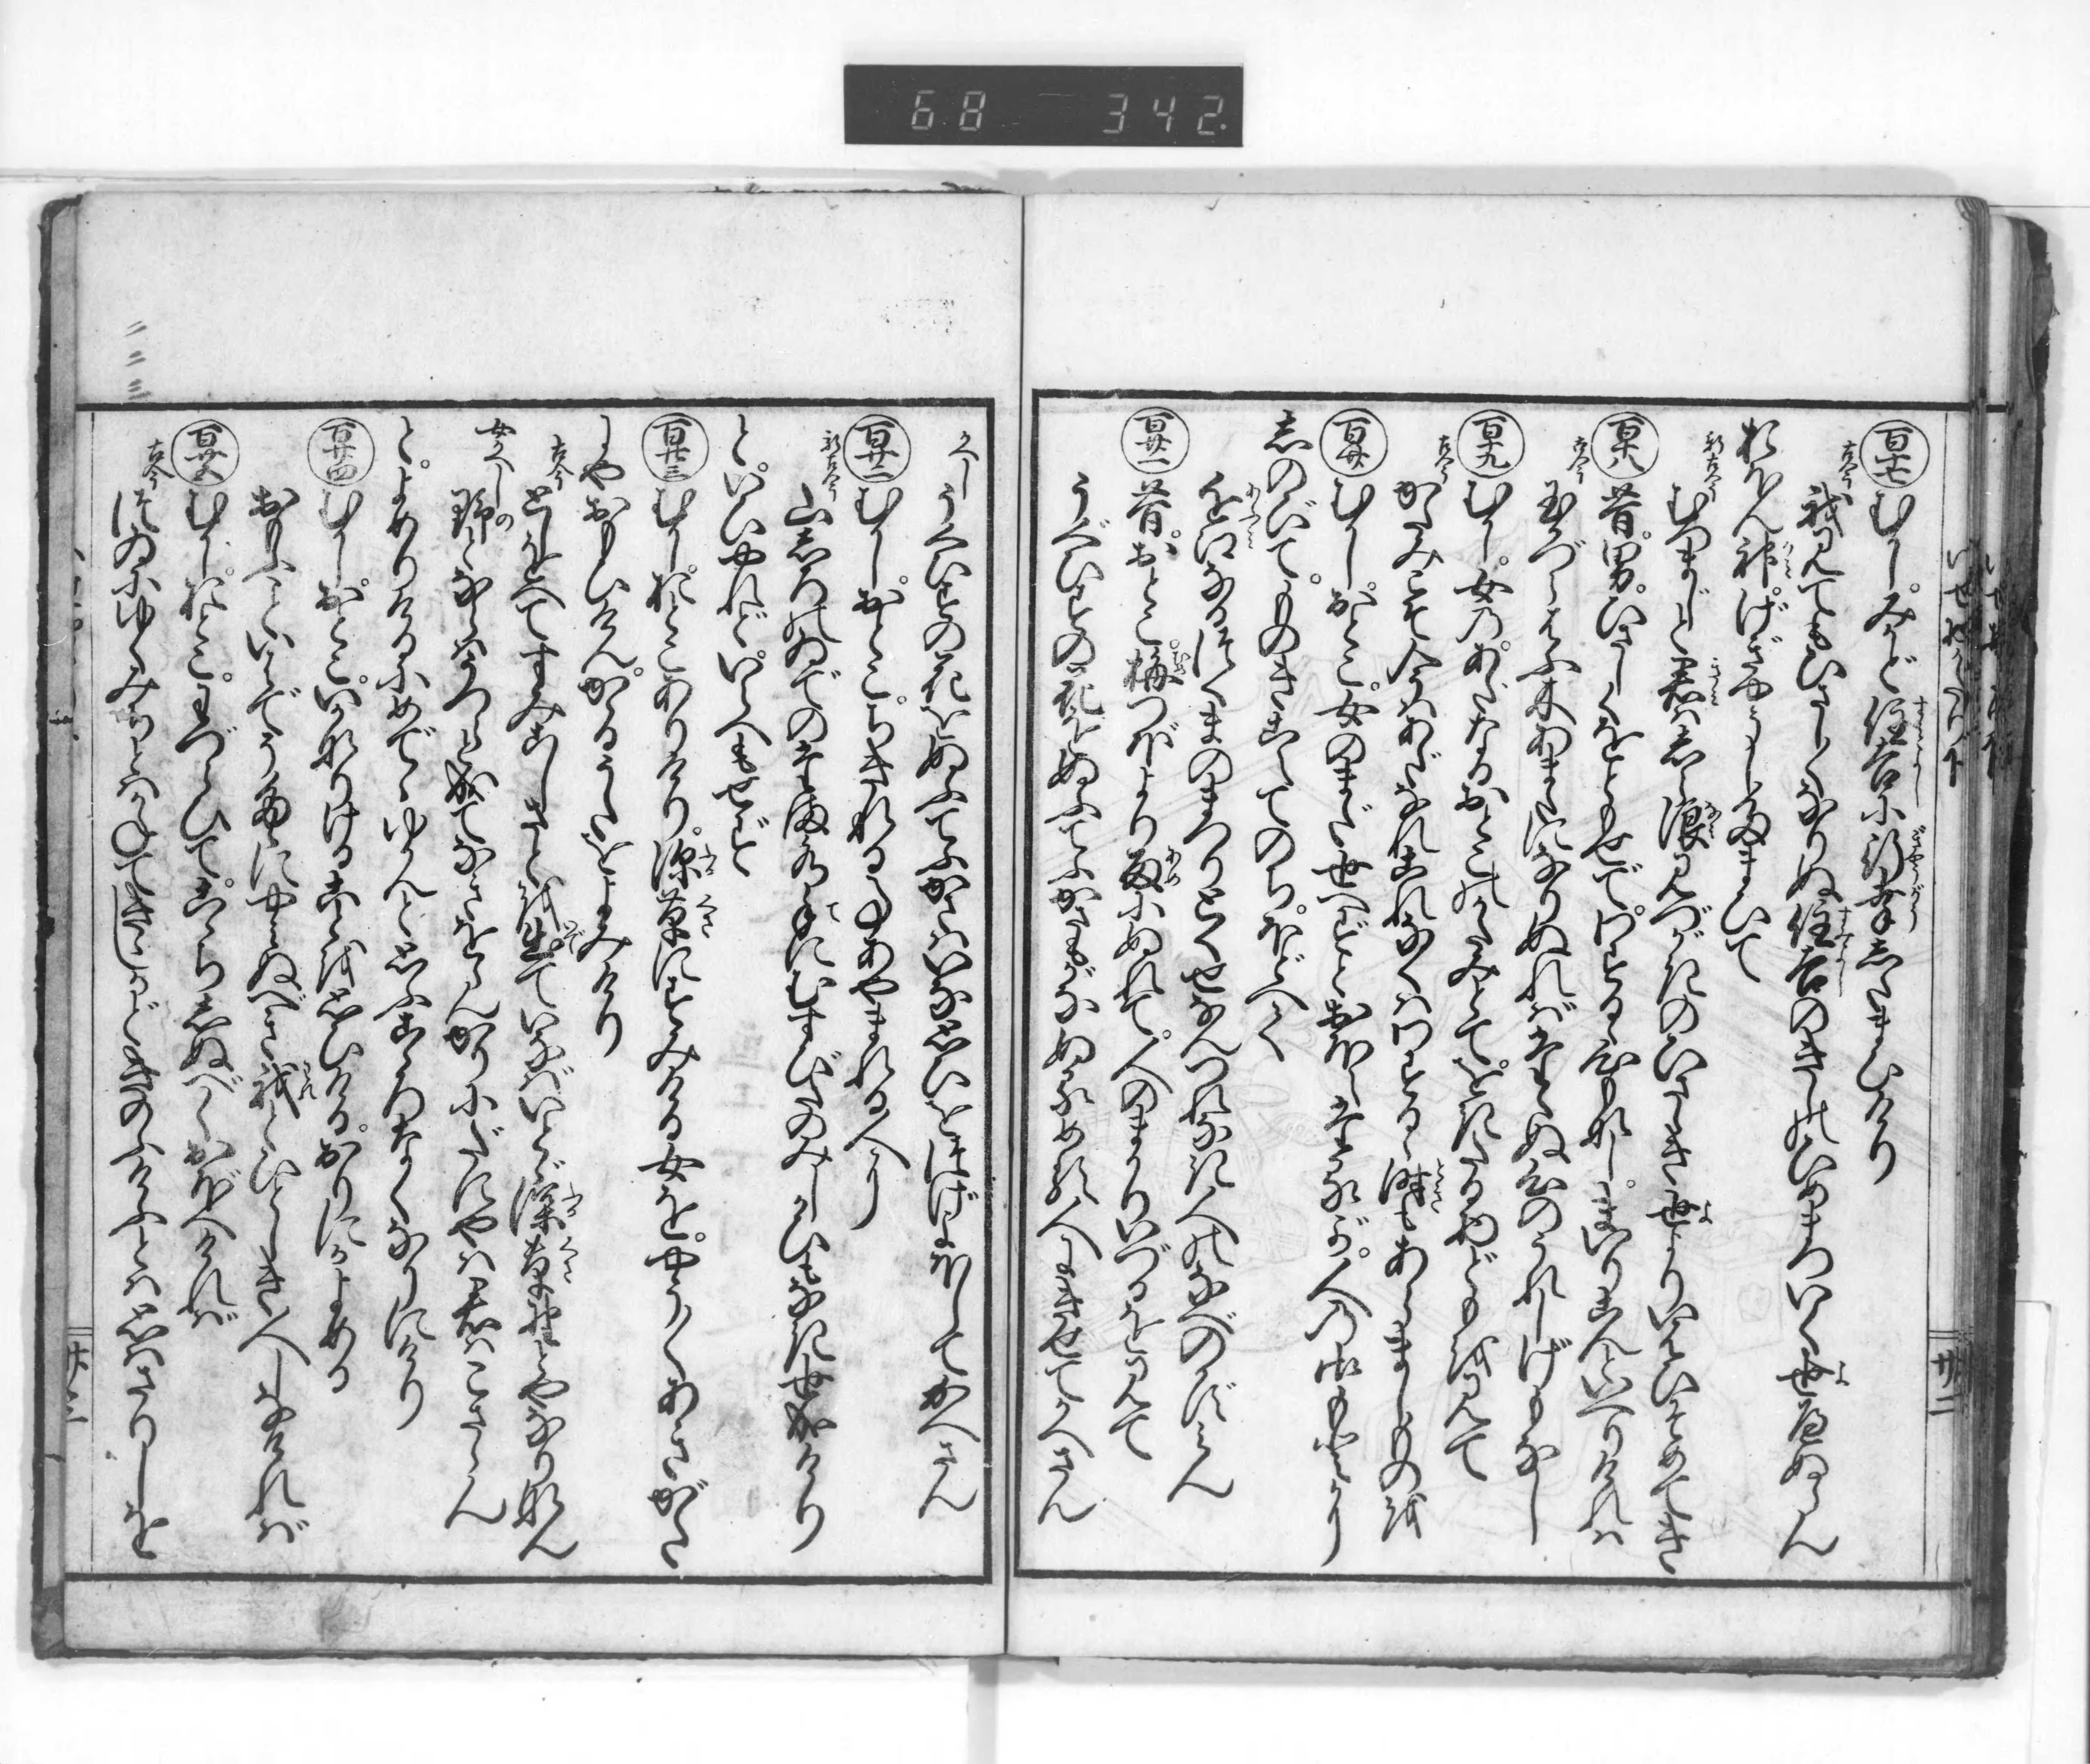 68 342.
いせ物がたり下
百十七 むかし。みかど住吉に行幸し給ひけり
古今 我見てもひさしくなりぬ住吉のきしのひめまついくよへぬらん
おほん神。げぎやうし給ひて
新古今 むつまじと君はしら浪みづがきのひさしき世よりいはひそめてき
百十八 昔。男。ひさしくをともせで。わするゝ心もなし。まいりこんといへりければ
古今 玉かづらはふ木あまたになりぬればたえぬ心のうれしげもなし
百十九 むかし。女の。あだなるおとこのかたみとて。をきたる物どもを見て
古今 かたみこそ今はあだなれこれなくはわするゝ時もあらましものを
百廿 むかし。おとこ。女のまだ世へずとおぼえたるが。人の御もとに
しのびて。ものきこえてのち。ほどへて
近江なるつくまのまつりとくせなんつれなき人のなべのかずみん
百廿一 昔。おとこ。梅つぼより雨にぬれて。人のまかりいづるを見て
うぐひすの花をぬふてふかさもがなぬるめる人にきせてかへさん
廿二
かへし うぐひすの花をぬふてふかさはいなおもひをつけよほしてかへさん
百廿二 むかし。おとこ。ちぎれることあやまれる人に
新古今 山しろのゐでの玉水手にむすびたのみしかひもなき世なりけり
と。いひやれど。いらへもせず
百廿三 むかし。おとこありけり。深草にすみける女を。やう〳〵あきがた
にや。おもひけん。かゝるうたをよみけり
古今 としをへてすみこしさとを出ていなばいとゞ深草野とやなりなん
女かへし 野とならばうづらと成てなきをらんかりにだにやは君はこざらん
と。よめりけるにめでゝ。ゆかんと思ふこゝろなくなりにけり
百廿四 むかし。おとこ。いかなりける事を思ひける。おりにかよめる
おもふこといはでぞたゞにやみぬべき我とひとしき人しなければ
百廿五 むかし。おとこ。わづらひて。こゝちしぬべくおぼえければ
古今 つゐにゆくみちとはかねてきゝしかどきのふけふとは思はざりしを